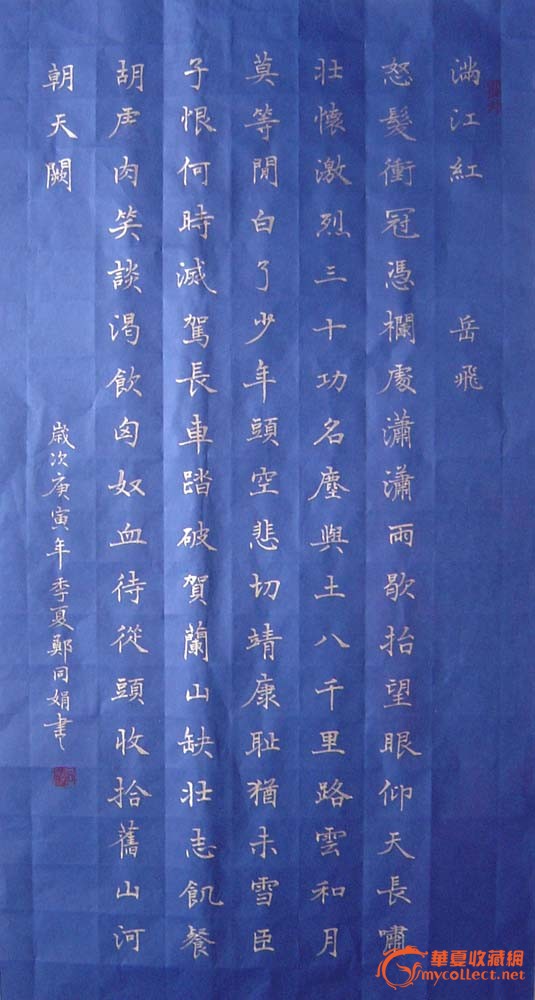 滿江紅 岳飛
怒髮衝冠憑欄處瀟瀟雨歇抬望眼仰天長嘯
壯懷激烈三十功名塵與土八千里路雲和月
莫等閒白了少年頭空悲切靖康耻猶未雪臣
子恨何時滅駕長車踏破賀蘭山缺壯志飢餐
胡虜肉笑談渴飲匈奴血待從頭收拾舊山河
朝天闕
歲次庚寅年季夏鄭同娟書
華夏收藏網
mycollect.net